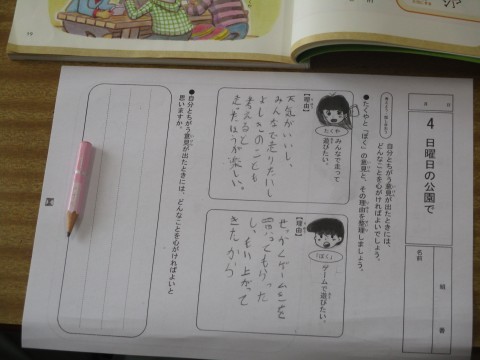 月 日
4 日曜日の公園で
組 番
名前
考えよう、話し合おう
自分とちがう意見が出たときには、
どんなことを心がければよいでしょう。
●たくやと「ぼく」の意見と、その理由を整理しましょう。
たくや
みんなで走って
遊びたい。
【理由】
天気がいいし、
みんなで走りたいし
よしきのことも
考えると
走ったほうが楽しい。
「ぼく」
ゲームで遊びたい。
【理由】
せっかくゲームを
買ってもらった
し、もり上がって
きたから
●自分とちがう意見が出たときには、どんなことを心がければよいと
思いますか。